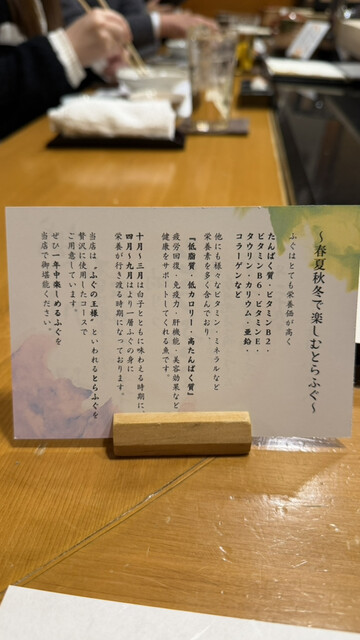 ～春夏秋冬で楽しむとらふぐ～
ふぐはとても栄養価が高く
たんぱく質・ビタミンB2・
ビタミンB6・ビタミンE・
タウリン・カリウム・亜鉛・
コラーゲンなど
他にも様々なビタミン・ミネラルなど
栄養素を多く含んでおり、
『低脂質・低カロリー・高たんぱく質』
疲労回復・免疫力・肝機能・美容効果など
健康をサポートしてくれる魚です。
十月～三月は白子とともに味わえる時期に、
四月～九月はより一層ふぐの身に
栄養が行き渡る時期になっております。
当店は〝ふぐの王様〟といわれるとらふぐを
贅沢に使用したコースで
ご用意しています。
ぜひ一年中楽しめるふぐを
当店で御堪能ください。